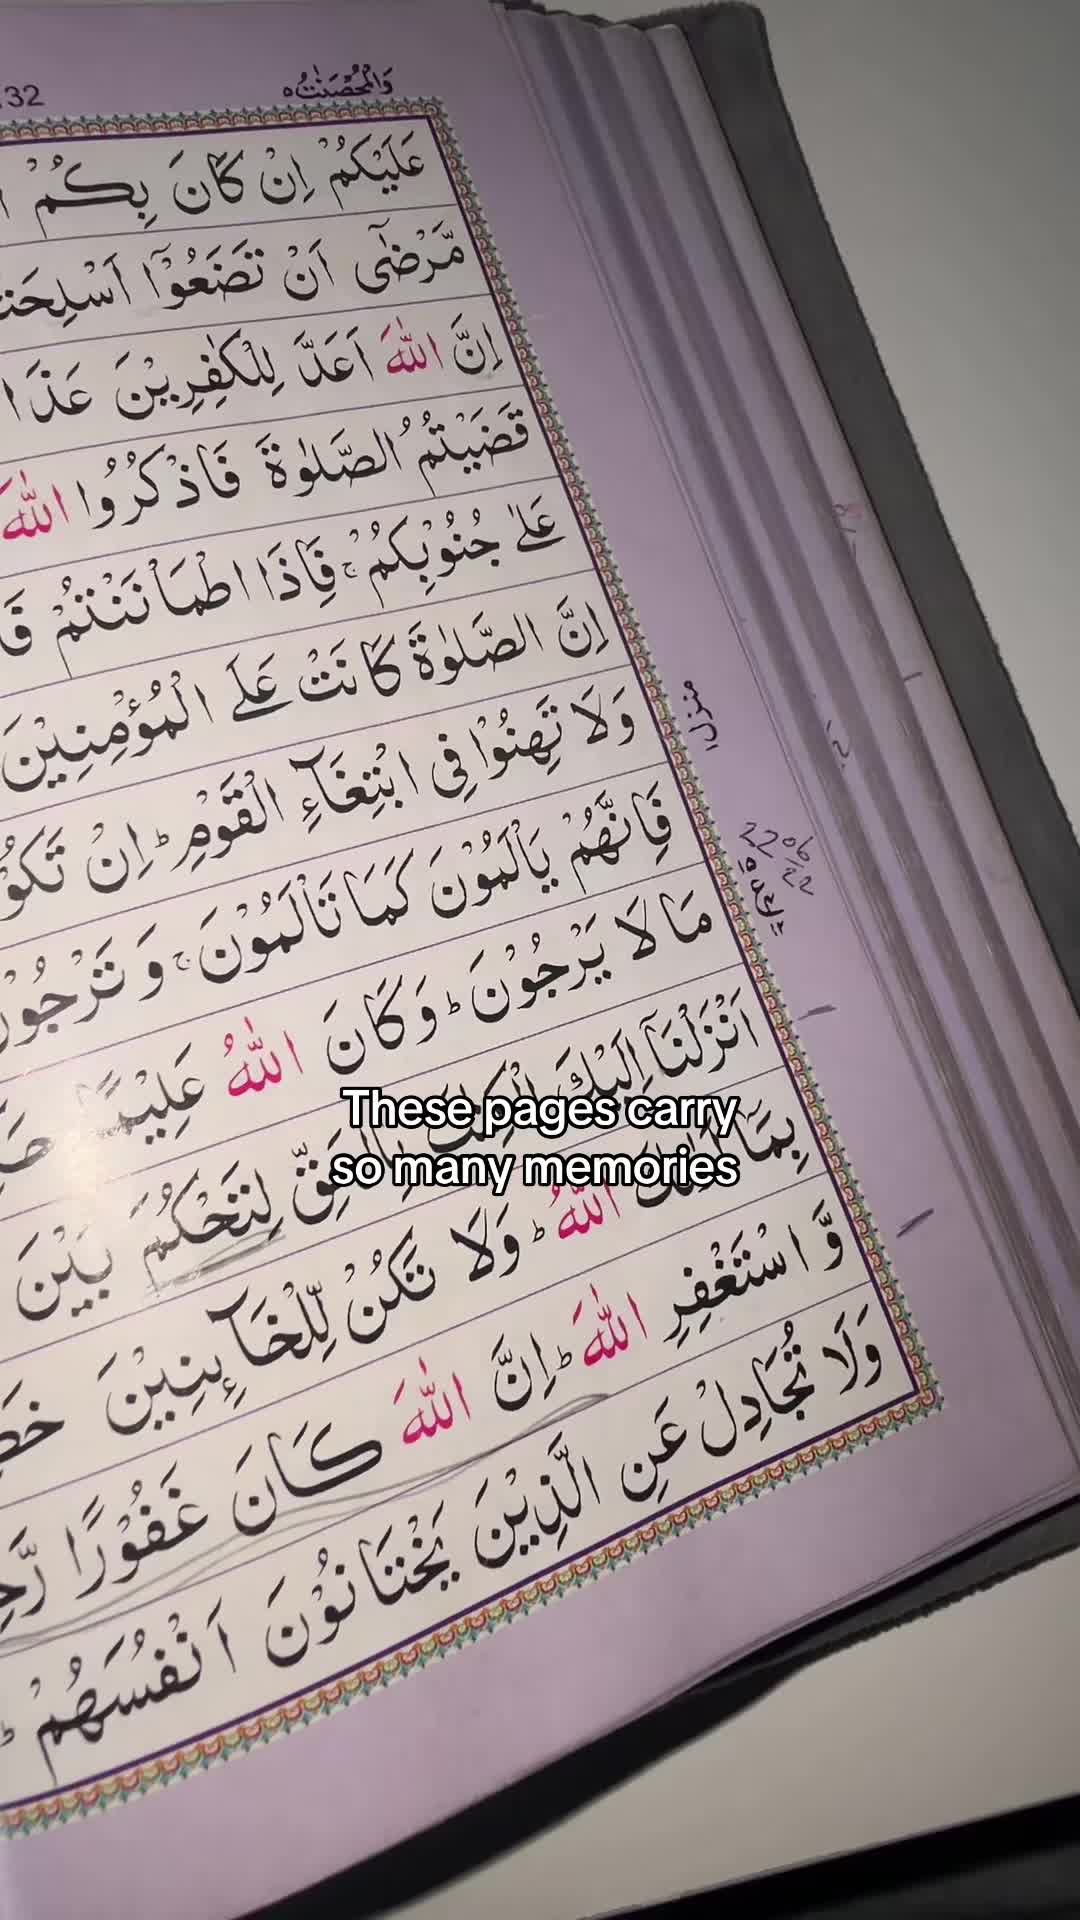 132
وَالْمُحْصَنٰتُ ٥
عَلَيْكُمْ اِنْ كَانَ بِكُمْ
مَّرْضٰٓى اَنْ تَضَعُوْٓا
اِنَّ اللّٰهَ اَعَدَّ لِلْكٰفِرِيْنَ
قَضَيْتُمُ الصَّلٰوةَ فَاذْكُرُوا اللّٰهَ
عَلٰى جُنُوْبِكُمْ ۚ فَاِذَا اطْمَاْنَنْتُمْ
اِنَّ الصَّلٰوةَ كَانَتْ عَلَى الْمُؤْمِنِيْنَ
وَلَا تَهِنُوْا فِى ابْتِغَآءِ الْقَوْمِ ؕ اِنْ
فَاِنَّهُمْ يَاْلَمُوْنَ كَمَا تَاْلَمُوْنَ ۚ وَ
مَا لَا يَرْجُوْنَ ؕ وَكَانَ اللّٰهُ عَلِيْمًا
اَنْزَلْنَآ اِلَيْكَ الْكِتٰبَ بِالْحَقِّ لِتَحْكُمَ بَيْنَ
بِمَآ اَرٰىكَ اللّٰهُ ؕ وَلَا تَكُنْ لِّلْخَآىِٕنِيْنَ
وَّاسْتَغْفِرِ اللّٰهَ ؕ اِنَّ اللّٰهَ كَانَ غَفُوْرًا
وَلَا تُجَادِلْ عَنِ الَّذِيْنَ يَخْتَانُوْنَ اَنْفُسَهُمْ ؕ
منزل
22 06
22
These pages carry
so many memories